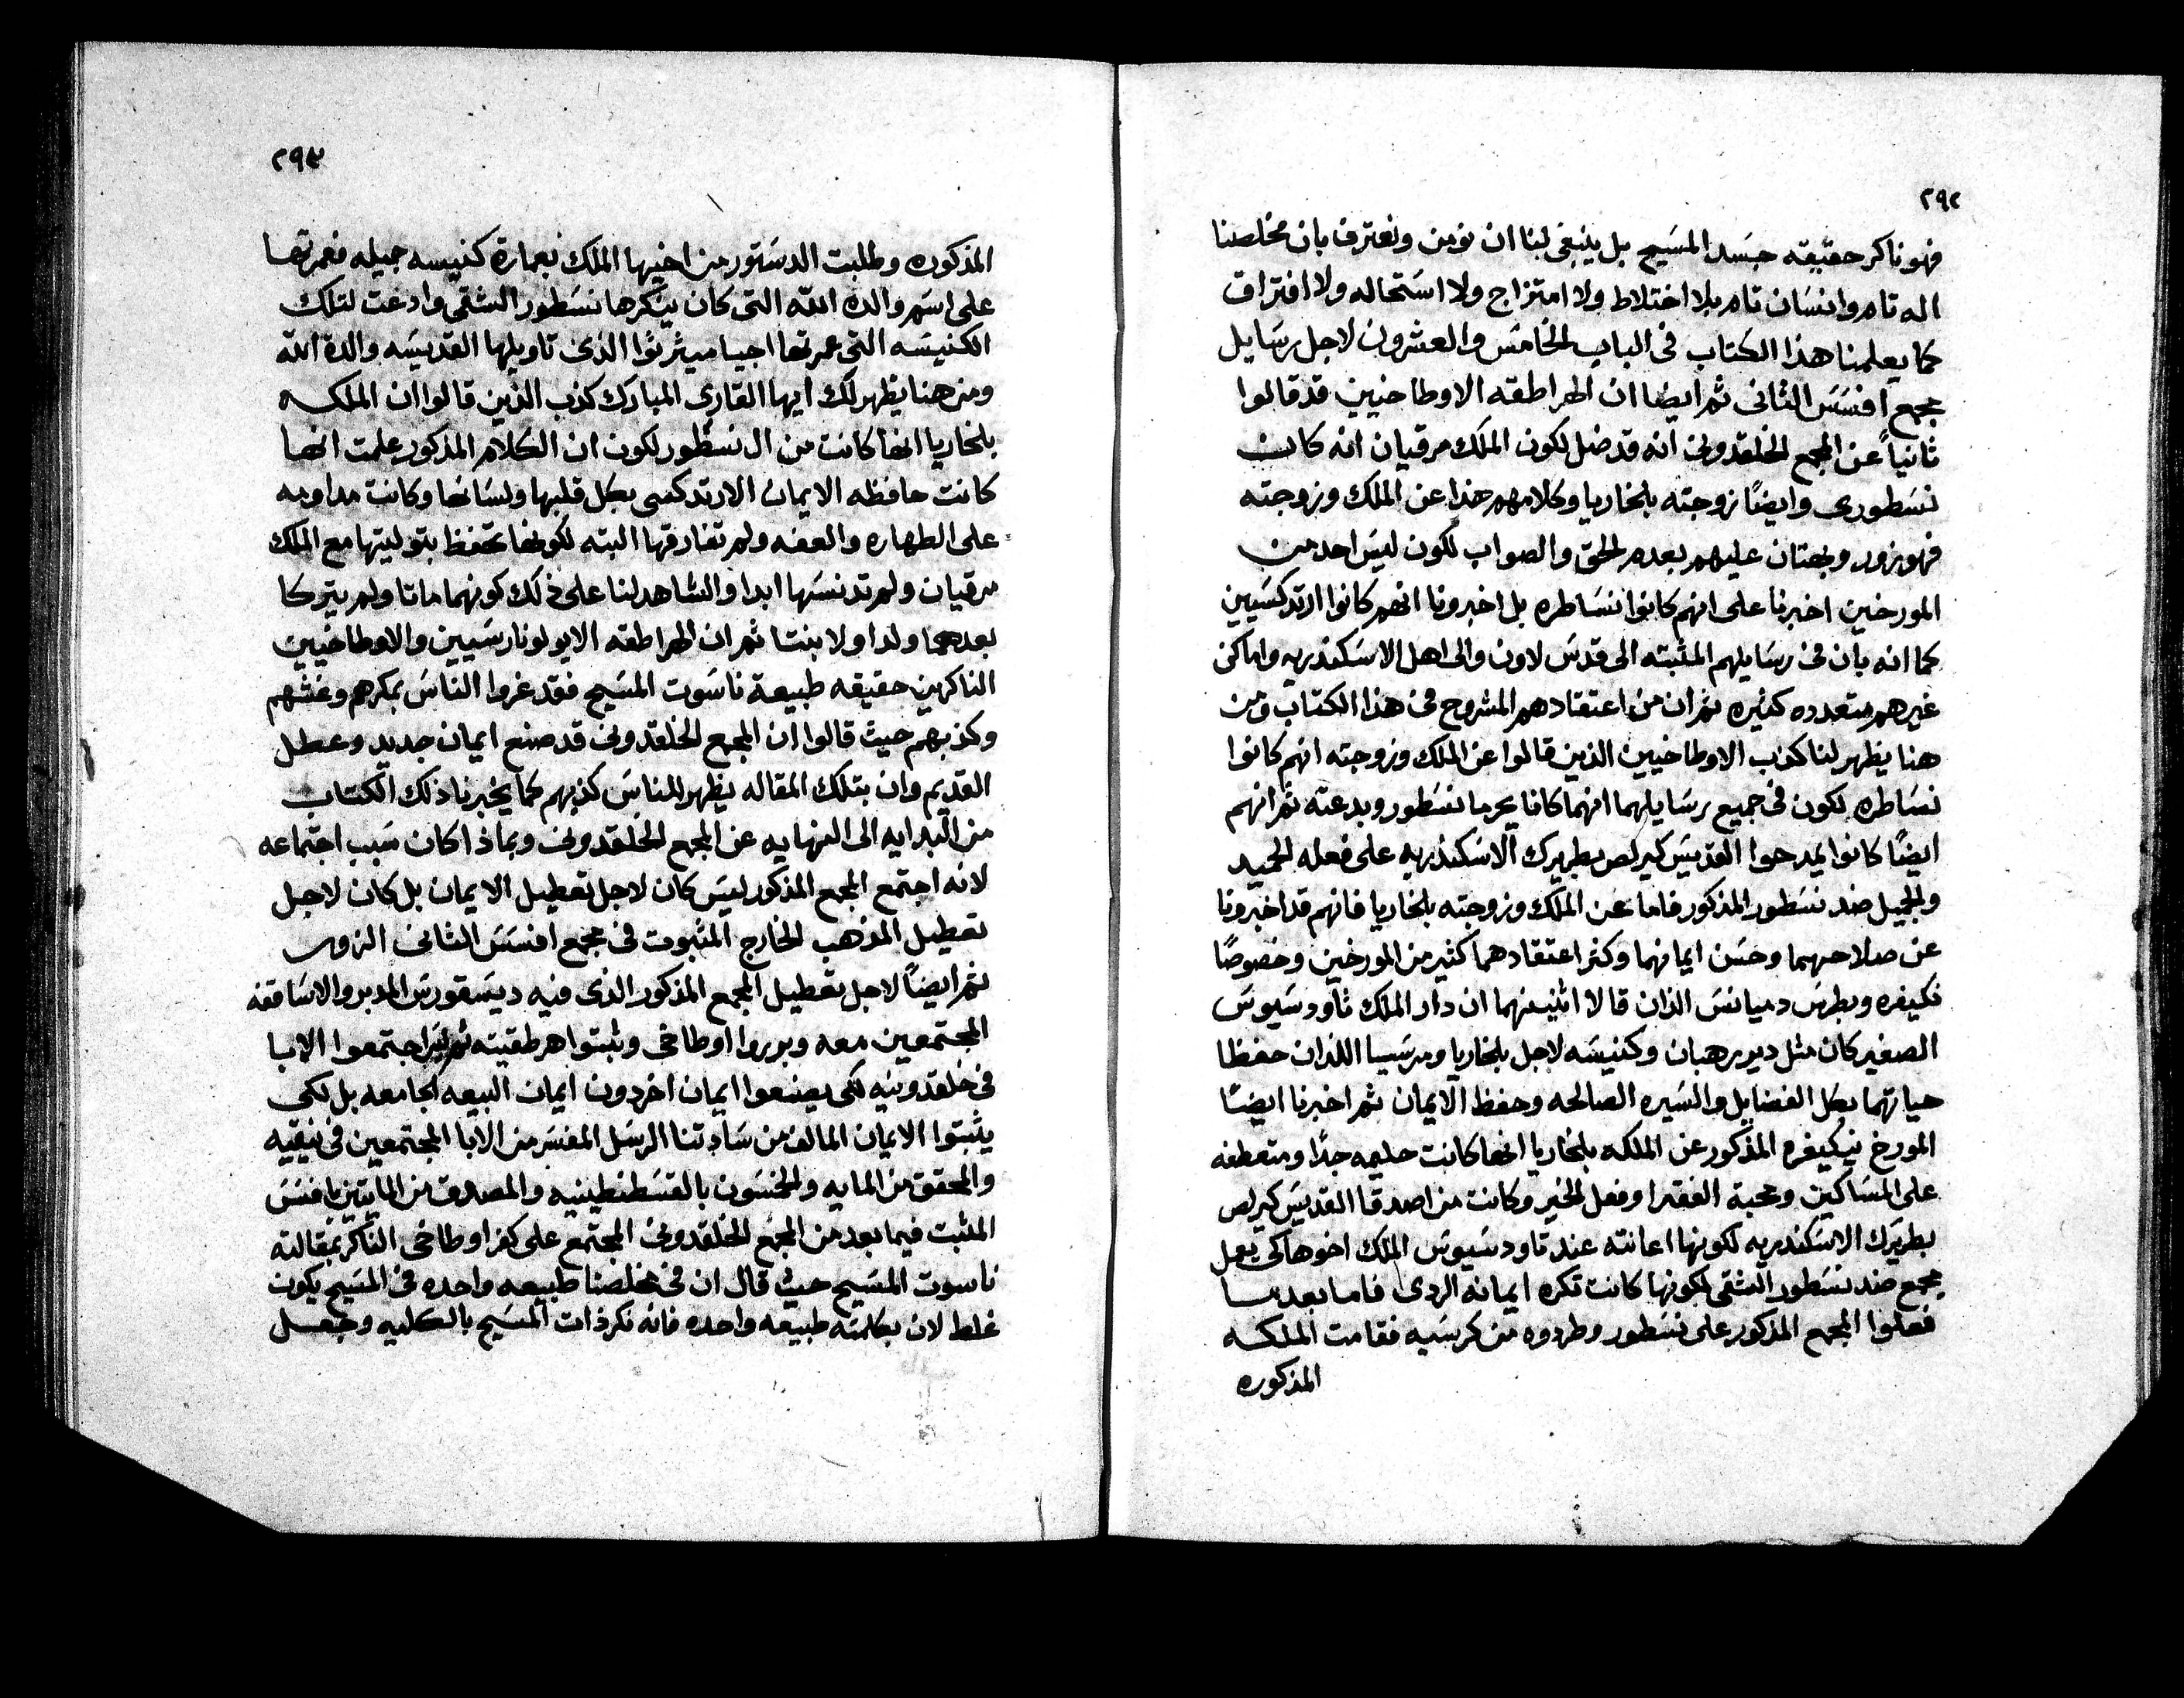 ٢٩٢
فهو ناكر حقيقه جسد المسيح بل ينبغي لنا ان نومن ونعترف بان مخلصنا
اله تام وانسان تام بلا اختلاط ولا امتزاج ولا استحاله ولا افتراق
كما يعلمنا هذا الكتاب في الباب الخامس والعشرون لاجل رسايل
مجمع افسس الثاني ثم ايضا ان الهراطقه الاوطاخيين قد قالوا
ثانياً عن المجمع الخلقدوني انه قد ضل لكون الملك مرقيان انه كان
نسطوري وايضًا زوجته بلخاريا وكلامهم هذا عن الملك وزوجته
فهو زور وبهتان عليهم بعدم الحق والصواب لكون ليس احد من
المورخين اخبرنا على انهم كانوا نساطره بل اخبرونا انهم كانوا ارتدكسيين
كما انه بان في رسايلهم المثبته الى قدس لاون والى اهل الاسكندريه واماكن
غيرهم متعدده كثيره ثم ان من اعتقادهم المشروح في هذا الكتاب ومن
هنا يظهر لنا كذب الاوطاخيين الذين قالوا عن الملك وزوجته انهم كانوا
نساطره لكون في جميع رسايلهما انهما كانا يحرما نسطور وبدعته ثم انهم
ايضًا كانوا يمدحوا القديس كيرلص بطريرك الاسكندريه على فعله الحميد
والجميل ضد نسطور المذكور فاما عن الملك وزوجته بلخاريا فانهم قد اخبرونا
عن صلاحهما وحسن ايمانهما وكثر اعتقادهما كثير من المورخين وخصوصًا
نكيفره وبطرس دميانس الذان قالا اثنينهما ان دار الملك تاودسيوس
الصغير كان مثل دير رهبان وكنيسه لاجل بلخاريا ومرسيا اللذان حفظا
حياتهما بكل الفضايل والسيره الصالحه وحفظ الايمان ثم اخبرنا ايضًا
المورخ نيكيفره المذكور عن الملكه بلخاريا انها كانت حليمه جدًا ومتعطفه
على المساكين ومحبة الفقرا وفعل الخير وكانت من اصدقا القديس كيرلص
بطريرك الاسكندريه لكونها اعانته عند تاودسيوس الملك اخوها لكي يعمل
مجمع ضد نسطور الشقي لكونها كانت تكره ايمانه الردي فاما بعد ما
فعلوا المجمع المذكور على نسطور وطردوه من كرسيه فقامت الملكه
المذكوره
٢٩٣
المذكوره وطلبت الدستور من اخيها الملك بعمارة كنيسه جميله فعمرتها
على اسم والده الله التي كان ينكرها نسطور الشقي وادعت لتلك
الكنيسه التي عمرتها اجيا ميثرثوا الذي تاويلها القديسه والدة الله
ومن هنا يظهر لك ايها القاري المبارك كذب الذين قالوا ان الملكه
بلخاريا انها كانت من ال نسطور لكون ان الكلام المذكور علمت انها
كانت حافظه الايمان الارتدكسي بكل قلبها ولسانها وكانت مداومه
على الطهاره والعفه ولم تفارقها البته لكونها تحفظ بتوليتها مع الملك
مرقيان ولم تدنسها ابدا والشاهد لنا على ذلك كونهما ماتا ولم يتركا
بعدهما ولدا ولا بنتا ثم ان الهراطقه الابولونارسيين والاوطاخيين
الناكرين حقيقه طبيعة ناسوت المسيح فقد غروا الناس بمكرهم وغشهم
وكذبهم حيث قالوا ان المجمع الخلقدوني قد صنع ايمان جديد وعطل
القديم وان بتلك المقاله يظهر للناس كذبهم كما يخبرنا ذلك الكتاب
من البدايه الى النهايه عن المجمع الخلقدوني وبماذا كان سبب اجتماعه
لانه اجتمع المجمع المذكور ليس كان لاجل تعطيل الايمان بل كان لاجل
تعطيل المذهب الخارج المثبوت في مجمع افسس الثاني الزور
ثم ايضاً لاجل تعطيل المجمع المذكور الذي فيه ديسقورس المدبر والاساقفه
المجتمعين معه وبرروا اوطاخي وثبتوا هرطقيته ثم ليس اجتمعوا الابا
في خلقدونيه لكي يصنعوا ايمان اخر دون ايمان البيعه الجامعه بل لكي
يثبتوا الايمان المالف من ساداتنا الرسل المفسر من الابا المجتمعين في نيقيه
والمحقق من المايه والخمسون بالقسطنطينيه والمصدق من المايتين بافسس
المثبت فيما بعد من المجمع الخلقدوني المجتمع على كفر اوطاخي الناكر بمقالته
ناسوت المسيح حيث قال ان في مخلصنا طبيعه واحده في المسيح يكون
غلط لان بكلمته طبيعه واحده فانه نكر ذات المسيح بالكليه وجعل